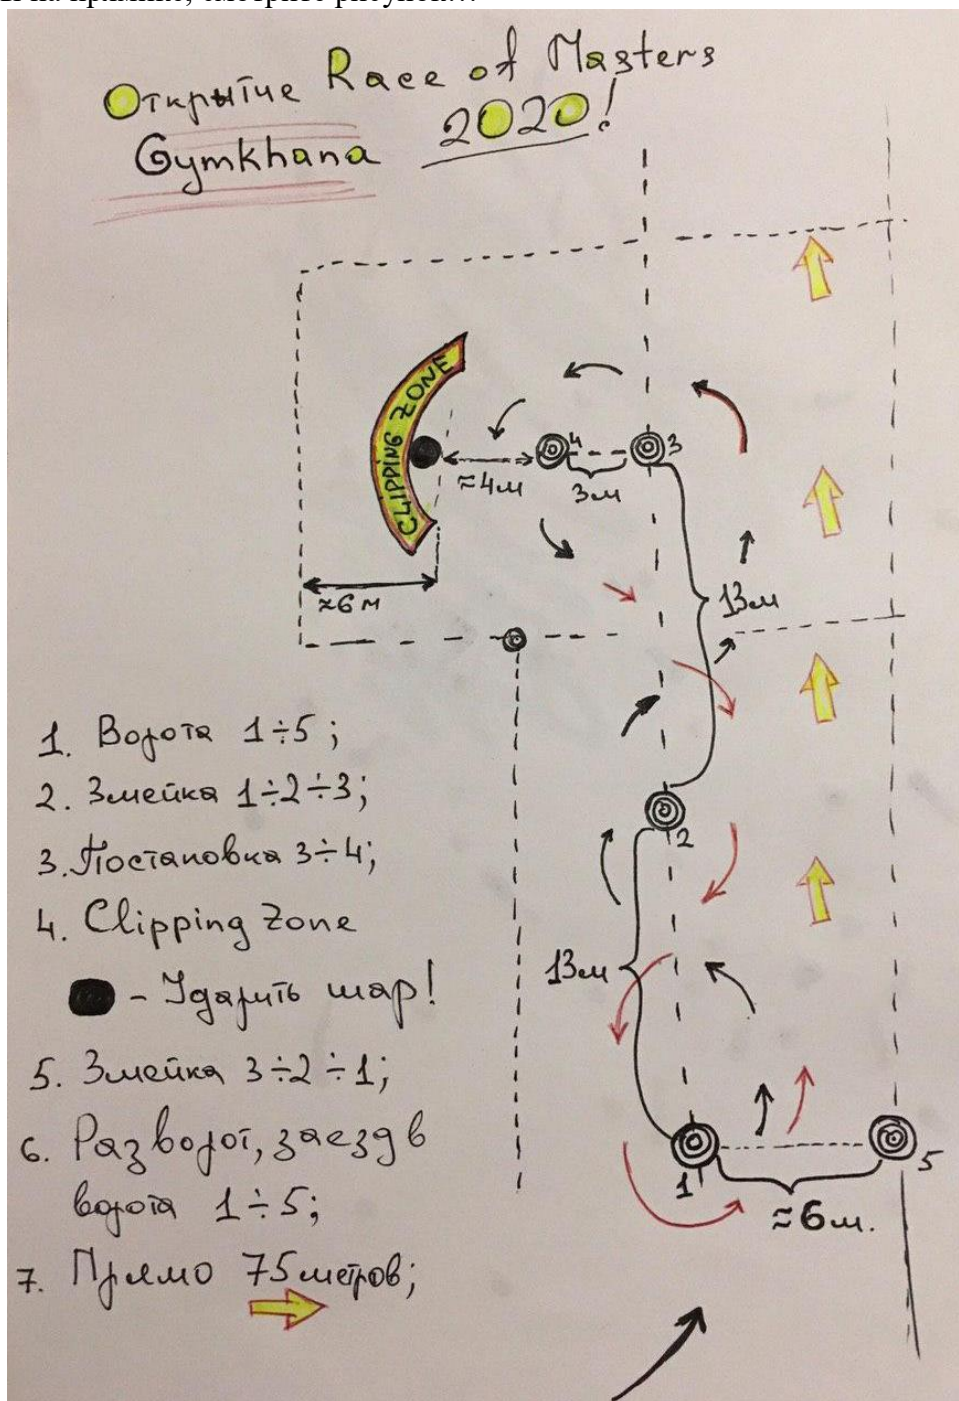 на прямике, смотрите рисунок…
Открытие Race of Masters
Gymkhana 2020!
CLIPPING ZONE
4
3
≈4м
3м
≈6м
13м
2
13м
1
5
≈6м.
1. Ворота 1÷5;
2. Змейка 1÷2÷3;
3. Постановка 3÷4;
4. Clipping Zone
- Ударить шар!
5. Змейка 3÷2÷1;
6. Разворот, заезд в
ворота 1÷5;
7. Прямо 75 метров;